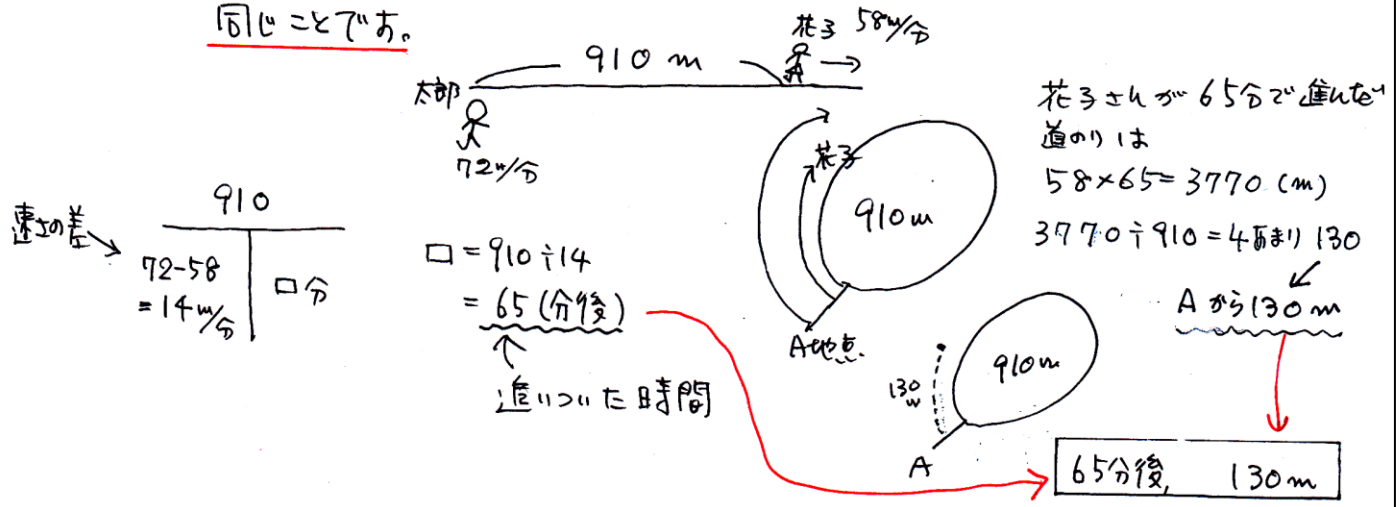 同じことです。
花子 58m/分
910m
太郎
72m/分
速さの差
910
72-58
=14m/分
□分
□=910÷14
=65(分後)
追いついた時間
花子
910m
A地点
910m
130m
A
花子さんが65分で進んだ
道のりは
58×65=3770(m)
3770÷910=4あまり130
Aから130m
65分後, 130m